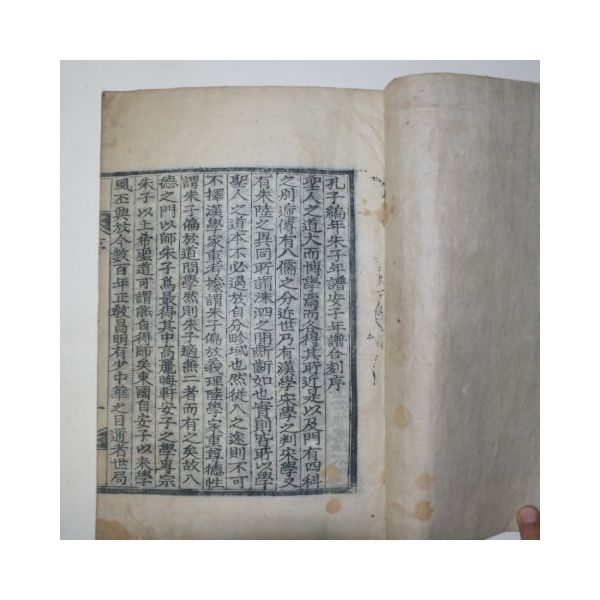 孔子編年朱子年譜安子年譜合刻序
聖人之道大而博學焉而各得其所近是以及門有四科
之別遞傳有八儒之分近世乃有漢學宋學之判宋學又
有朱陸之異同所謂洙泗之間齗齗如也實則皆所以學
聖人之道本不必過於自分畛域也然從入之途則不可
不擇漢學家重考據謂朱子偏於義理陸學家重尊德性
謂朱子偏於道問學然則朱子適無二者而有之矣故入
德之門以師朱子爲最得其中高麗晦軒安子之學專宗
朱子以上希聖道可謂能自得師矣東國自安子以来學
風丕興於今數百年正敎昌明有少中華之目邇者世局
序